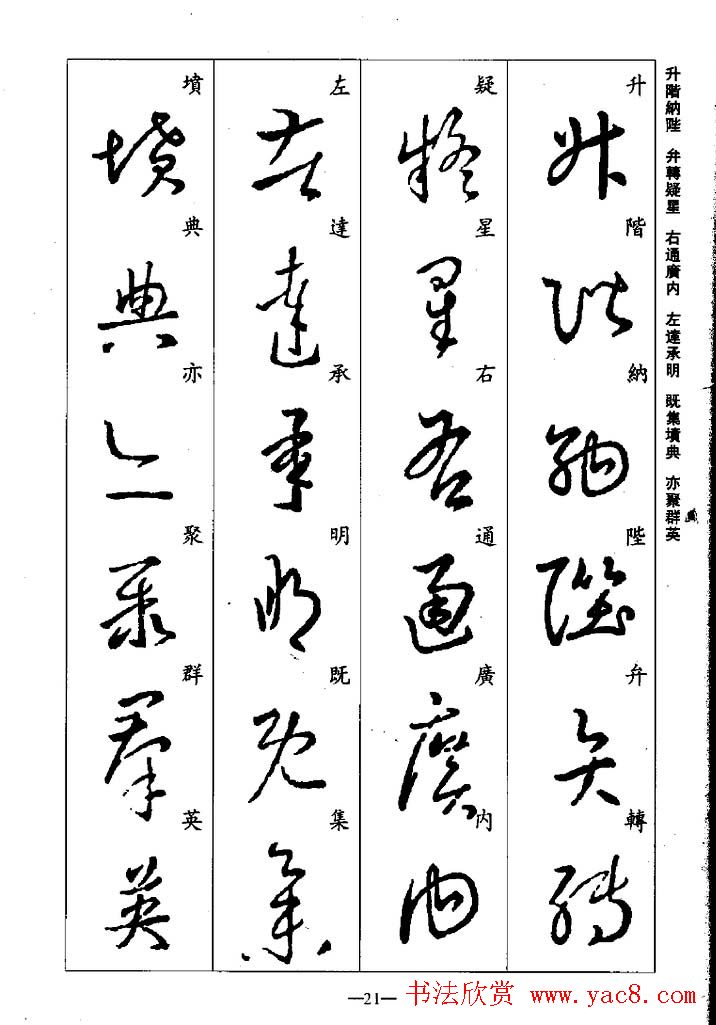 升階納陛 弁轉疑星 右通廣内 左達承明 既集墳典 亦聚群英
升階納陛弁轉
疑星右通廣内
左達承明既集
墳典亦聚群英
—21—
书法欣赏 www.yac8.com